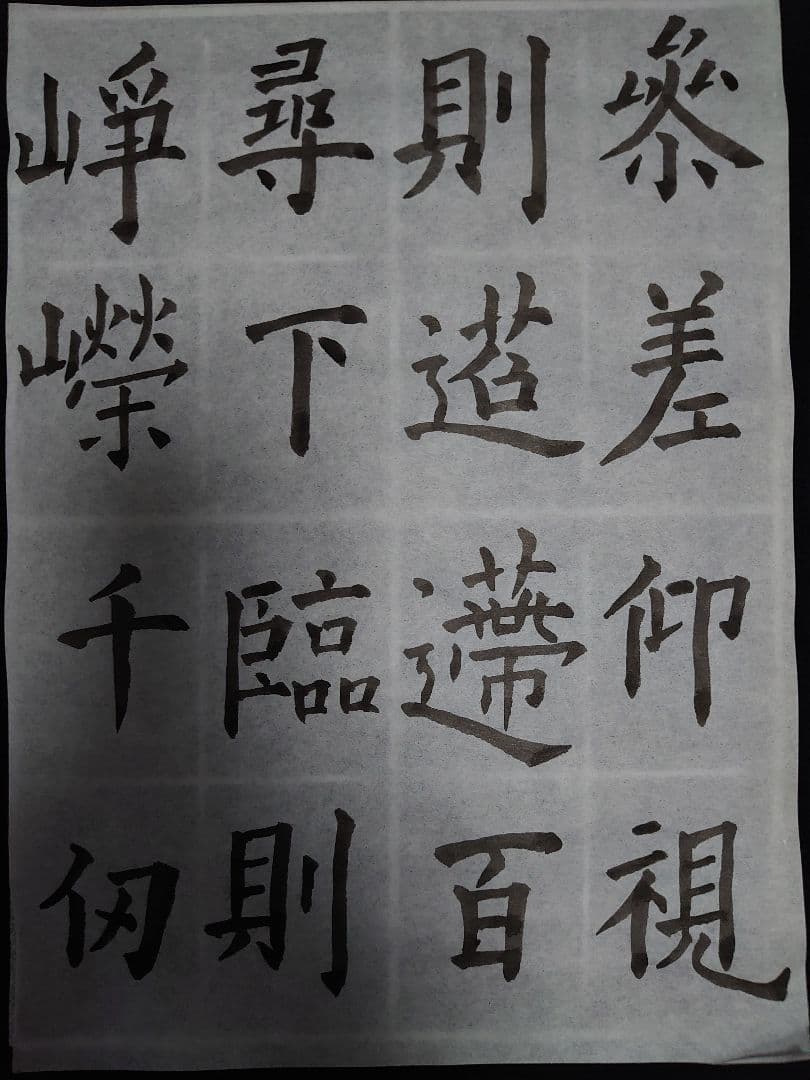 參差仰視
則迢遰百
尋下臨則
崢嶸千仞